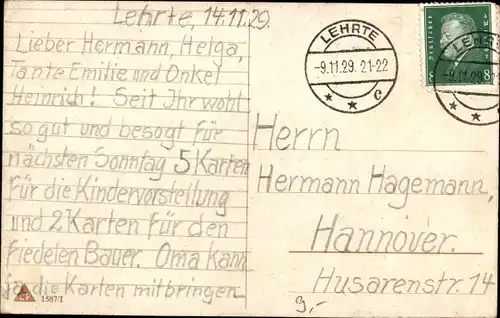 Lehrte, 14.11.29.
Lieber Hermann, Helga,
Tante Emilie und Onkel
Heinrich! Seit Ihr wohl
so gut und besogt für
nächsten Sonntag 5 Karten
für die Kindervorstellung
und 2 Karten für den
fiedelen Bauer. Oma kann
ja die Karten mitbringen
1587/I
LEHRTE
-9.11.29. 21-22
* * c
LEHRTE
-9.11.29
8
Herrn
Hermann Hagemann,
Hannover.
Husarenstr. 14
9,-